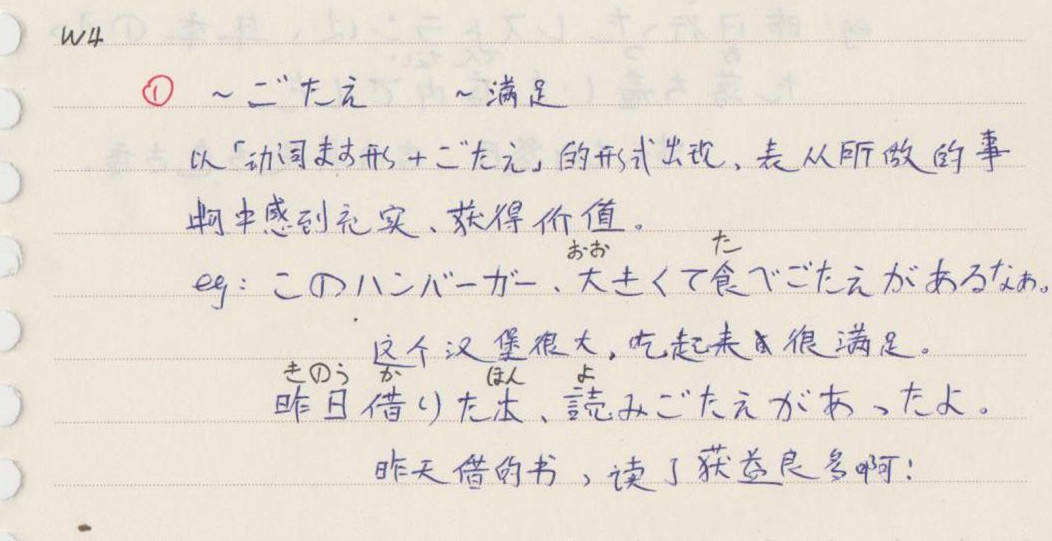 W4
① ~ごたえ ~满足
以「动词ます形+ごたえ」的形式出现、表从所做的事
中感到充实、获得价值。
おお た
eg: このハンバーガー、大きくて食べごたえがあるなぁ。
这个汉堡很大，吃起来很满足。
きのう か ほん よ
昨日借りた本、読みごたえがあったよ。
昨天借的书，读了获益良多啊！